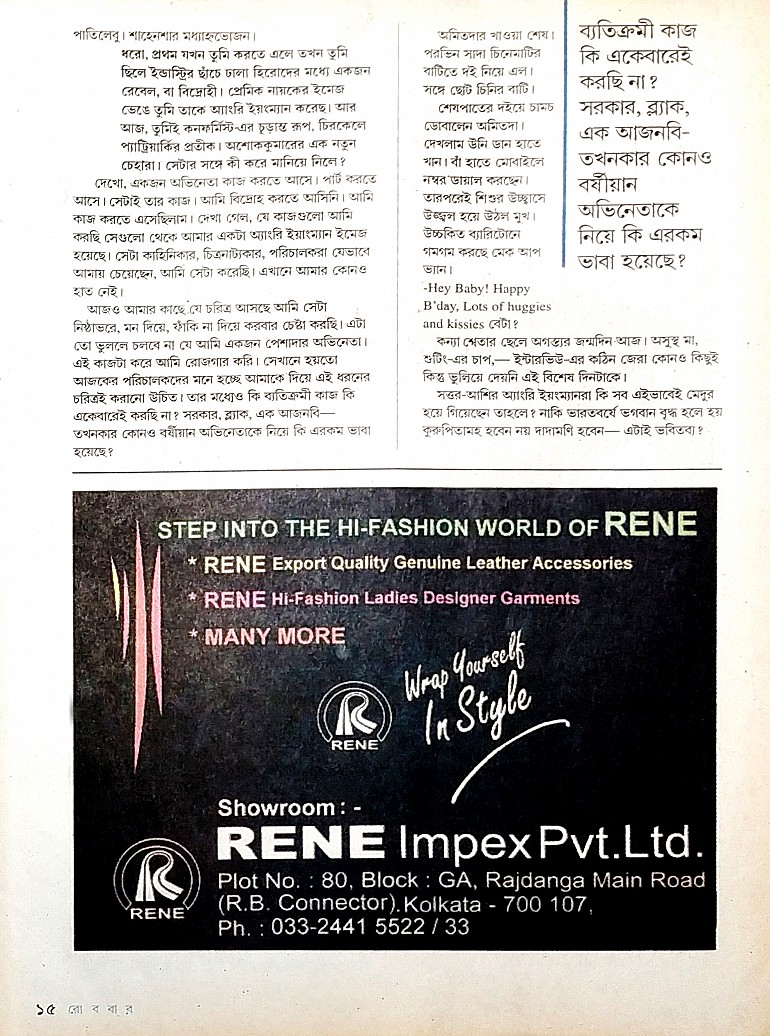 পাতিলেবু। শাহেনশার মধ্যাহ্নভোজন।
ধরো, প্রথম যখন তুমি করতে এলে তখন তুমি
ছিলে ইন্ডাস্ট্রির ছাঁচে ঢালা হিরোদের মধ্যে একজন
রেবেল, বা বিদ্রোহী। প্রেমিক নায়কের ইমেজ
ভেঙে তুমি তাকে অ্যাংরি ইয়ংম্যান করেছ। আর
আজ, তুমিই কনফর্মিস্ট-এর চূড়ান্ত রূপ, চিরকেলে
প্যাট্রিয়ার্কির প্রতীক। অশোককুমারের এক নতুন
চেহারা। সেটার সঙ্গে কী করে মানিয়ে নিলে?
দেখো, একজন অভিনেতা কাজ করতে আসে। পার্ট করতে
আসে। সেটাই তার কাজ। আমি বিদ্রোহ করতে আসিনি। আমি
কাজ করতে এসেছিলাম। দেখা গেল, যে কাজগুলো আমি
করছি সেগুলো থেকে আমার একটা অ্যাংরি ইয়ংম্যান ইমেজ
হয়েছে। সেটা কাহিনিকার, চিত্রনাট্যকার, পরিচালকরা যেভাবে
আমায় চেয়েছেন, আমি সেটা করেছি। এখানে আমার কোনও
হাত নেই।
আজও আমার কাছে যে চরিত্র আসছে আমি সেটা
নিষ্ঠাভরে, মন দিয়ে, ফাঁকি না দিয়ে করবার চেষ্টা করছি। এটা
তো ভুললে চলবে না যে আমি একজন পেশাদার অভিনেতা।
এই কাজটা করে আমি রোজগার করি। সেখানে হয়তো
আজকের পরিচালকদের মনে হচ্ছে আমাকে দিয়ে এই ধরনের
চরিত্রই করানো উচিত। তার মধ্যেও কি ব্যতিক্রমী কাজ কি
একেবারেই করছি না? সরকার, ব্ল্যাক, এক আজনবি—
তখনকার কোনও বর্ষীয়ান অভিনেতাকে নিয়ে কি এরকম ভাবা
হয়েছে?
অমিতদার খাওয়া শেষ।
পরভিন সাদা চিনেমাটির
বাটিতে দই নিয়ে এল।
সঙ্গে ছোট চিনির বাটি।
শেষপাতের দইয়ে চামচ
ডোবালেন অমিতদা।
দেখলাম উনি ডান হাতে
খান। বাঁ হাতে মোবাইলে
নম্বর ডায়াল করছেন।
তারপরেই শিশুর উচ্ছ্বাসে
উজ্জ্বল হয়ে উঠল মুখ।
উচ্চকিত ব্যারিটোনে
গমগম করছে মেক আপ
ভ্যান।
-Hey Baby! Happy
B'day, Lots of huggies
and kissies বেটা?
কন্যা শ্বেতার ছেলে অগস্ত্যর জন্মদিন আজ। অসুস্থ মা,
শুটিং-এর চাপ,— ইন্টারভিউ-এর কঠিন জেরা কোনও কিছুই
কিন্তু ভুলিয়ে দেয়নি এই বিশেষ দিনটাকে।
সত্তর-আশির অ্যাংরি ইয়ংম্যানরা কি সব এইভাবেই মেদুর
হয়ে গিয়েছেন তাহলে? নাকি ভারতবর্ষে ভগবান বৃদ্ধ হলে হয়
কুরুপিতামহ হবেন নয় দাদামণি হবেন— এটাই ভবিতব্য?
ব্যতিক্রমী কাজ
কি একেবারেই
করছি না?
সরকার, ব্ল্যাক,
এক আজনবি-
তখনকার কোনও
বর্ষীয়ান
অভিনেতাকে
নিয়ে কি এরকম
ভাবা হয়েছে?
STEP INTO THE HI-FASHION WORLD OF RENE
* RENE Export Quality Genuine Leather Accessories
* RENE Hi-Fashion Ladies Designer Garments
* MANY MORE
Wrap Yourself
In Style
RENE
Showroom : -
RENE Impex Pvt. Ltd.
Plot No. : 80, Block : GA, Rajdanga Main Road
(R.B. Connector). Kolkata - 700 107,
Ph. : 033-2441 5522 / 33
RENE
১৫ রোববার